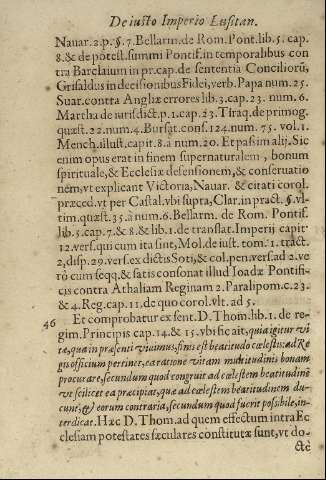 De iusto Imperio Lusitan.
Nauar. 2. p. §. 7. Bellarm. de Rom. Pont. lib. 5. cap.
8. & de potest. summi Pontif. in temporalibus con
tra Barclaium in pr. cap. de sententia Conciliorũ,
Grisaldus in decisionibus Fidei, verb. Papa num. 25.
Suar. contra Angliæ errores lib. 3. cap. 23. num. 6.
Martha de iurisdict. p. 1. cap. 23. Tiraq. de primog.
quæst. 22. num. 4. Bursat. cons. 124. num. 75. vol. 1.
Mench. illust. capit. 8. a num. 20. Et passim alij. Sic
enim opus erat in finem supernaturalem, bonum
spirituale, & Ecclesiæ defensionem, & conseruatio
nem, vt explicant Victoria, Nauar. & citati corol.
præced. vt per Castal. vbi supra, Clar. in pract. §. vl-
tim. quæst. 35. à num. 6. Bellarm. de Rom. Pontif.
lib. 5. cap. 7. & 8. & lib. 1. de translat. Imperij capit.
12. vers. qui cum ita sint, Mol. de iust. tom. 1. tract.
2. disp. 29. vers. ex dictis Soti, & col. pen. vers. ad 2. ve
rò cum seqq. & satis consonat illud Ioadæ Pontifi-
cis contra Athaliam Reginam 2. Paralipom. c. 23.
& 4. Reg. cap. 11. de quo corol. vlt. ad 5.
46 Et comprobatur ex sent. D. Thom. lib. 1. de re-
gim. Principis cap. 14. & 15. vbi sic ait, quia igitur vi
tæ, qua in præsenti viuimus, finis est beatitudo cœlestis: ad Re
gis officium pertinet, ea ratione vitam multitudinis bonam
procurare, secundum quod congruit ad cœlestem beatitudinẽ
vt scilicet ea præcipiat, quæ ad cœlestem beatitudinem du-
cunt, & eorum contraria, secundum quod fuerit possibile, in-
terdicat. Hæc D. Thom. ad quem effectum intra Ec
clesiam potestates sæculares constitutæ sunt, vt do-
ctè